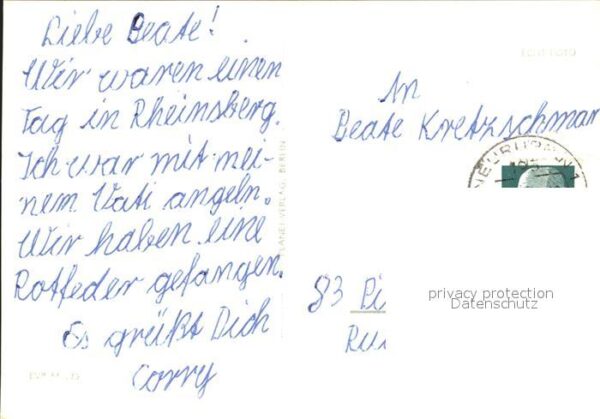 Liebe Beate!
Wir waren einen
Tag in Rheinsberg.
Ich war mit mei-
nem Vati angeln.
Wir haben eine
Rotfeder gefangen.
Es grüßt Dich
Corry
An
Beate Kretzschmar
83 Pi
privacy protection
Datenschutz
PLANET-VERLAG BERLIN